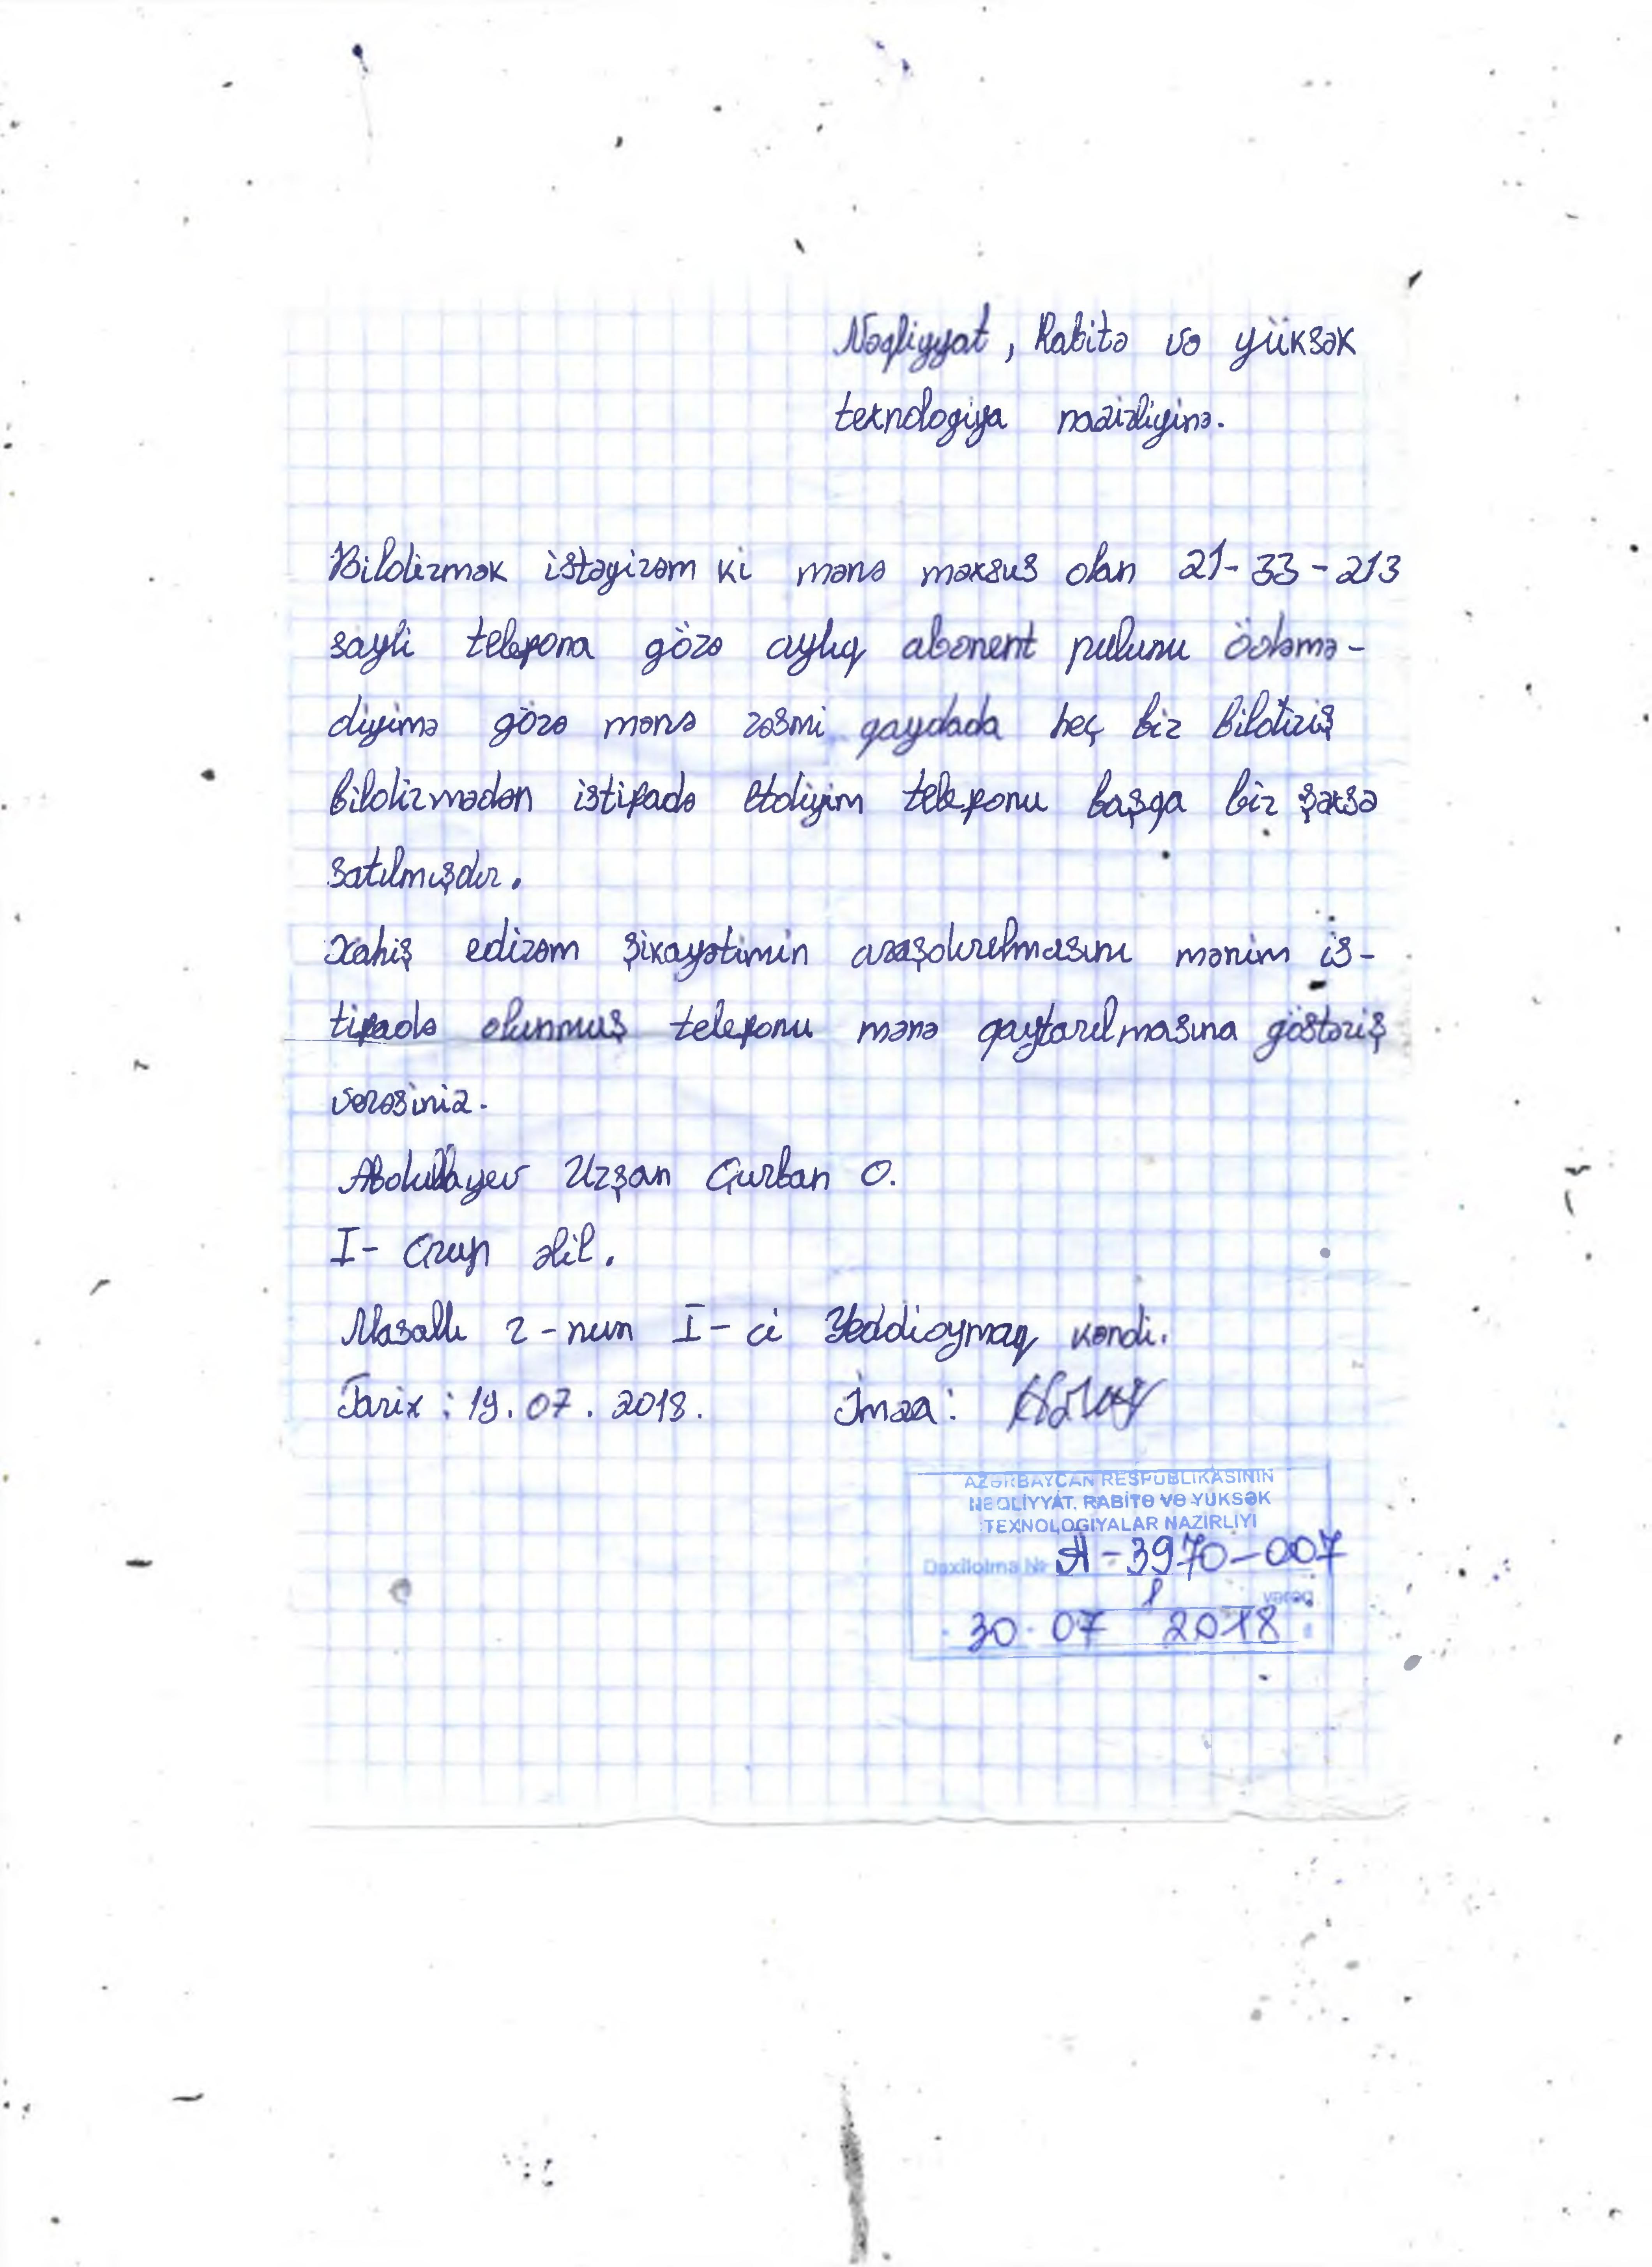 Nəqliyyat, Rabitə və yüksək
texnologiya nazirliyinə.
Bildirmək istəyirəm ki mənə məxsus olan 21-33-213
sayli telefona görə aylıq abonent pulunu ödəmə-
diyimə görə mənə rəsmi qaydada heç bir bildiriş
bildirmədən istifadə etdiyim telefonu başqa bir şəxsə
satılmışdır.
Xahiş edirəm şikayətimin araşdırılmasını mənim is-
tifadə olunmuş telefonu mənə qaytarılmasına göstəriş
verəsiniz.
Abdullayev Urşan Qurban O.
I- Qrup əlil.
Masallı r-nun I-ci Yeddioymaq kəndi.
Tarix: 19.07.2018. İmza:
AZƏRBAYCAN RESPUBLİKASININ
NƏQLİYYAT, RABİTƏ VƏ YÜKSƏK
TEXNOLOGİYALAR NAZİRLİYİ
Daxilolma № A-3970-007
1 vərəq
30.07 2018